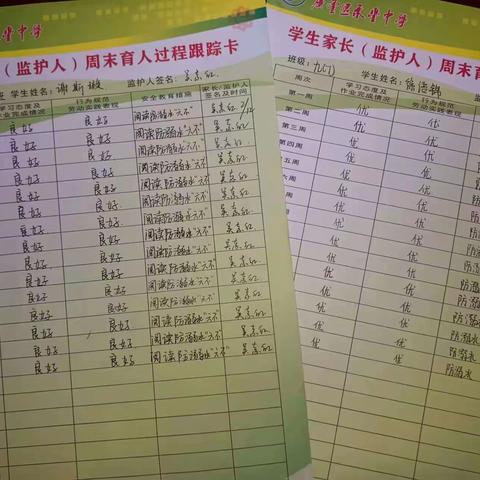 堂中学
（监护人）周末育人过程跟踪卡
学生姓名：谢斯璇 监护人签名：吴东红
学习态度及作业完成情况 行为规范劳动实践表现 安全教育措施 家长/监护人签名及时间
良好 良好 阅读防溺水"六不" 吴东红
良好 良好 阅读防溺水"六不" 吴东红
良好 良好 阅读防溺水"六不" 吴东红
良好 良好 阅读防溺水"六不" 吴东红
良好 良好 阅读防溺水"六不" 吴东红
良好 良好 阅读防溺水"六不" 吴东红
良好 良好 阅读防溺水"六不" 吴东红
良好 良好 阅读防溺水"六不" 吴东红
良好 良好 阅读防溺水"六不" 吴东红
良好 良好 阅读防溺水"六不" 吴东红
良好 良好 阅读防溺水"六不" 吴东红
良好 良好 阅读防溺水"六不" 吴东红
良好 良好 阅读防溺水"六不" 吴东红
堂中学
学生家长（监护人）周末育
班级：九(7) 学生姓名：
周次 学习态度及作业完成情况 行为规范劳动实践表现
第一周 优 优
第二周 优 优
第三周 优 优
第四周 优 优
五周 优 优
六周 优 优
周 优 优
周 优 优
优 优 防溺
优 优 防溺
优 优 防溺
优 优 防溺水
优 优 防溺水
防溺水